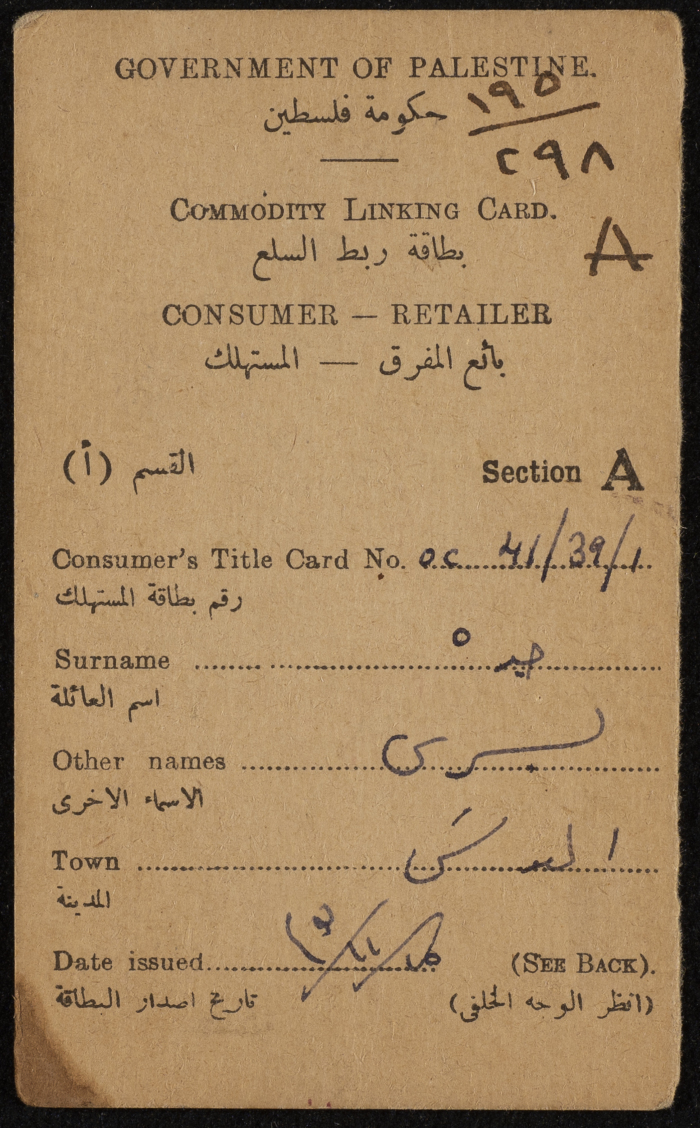 GOVERNMENT OF PALESTINE.
حكومة فلسطين
١٩٥
٢٩٨
COMMODITY LINKING CARD.
بطاقة ربط السلع
A
CONSUMER — RETAILER
بائع المفرق — المستهلك
Section A
القسم (أ)
Consumer's Title Card No. OC 41/39/1
رقم بطاقة المستهلك
Surname
اسم العائلة
Other names يسرى
الاسماء الاخرى
Town القدس
المدينة
Date issued
(SEE BACK).
تاريخ اصدار البطاقة
(انظر الوجه الخلفي)